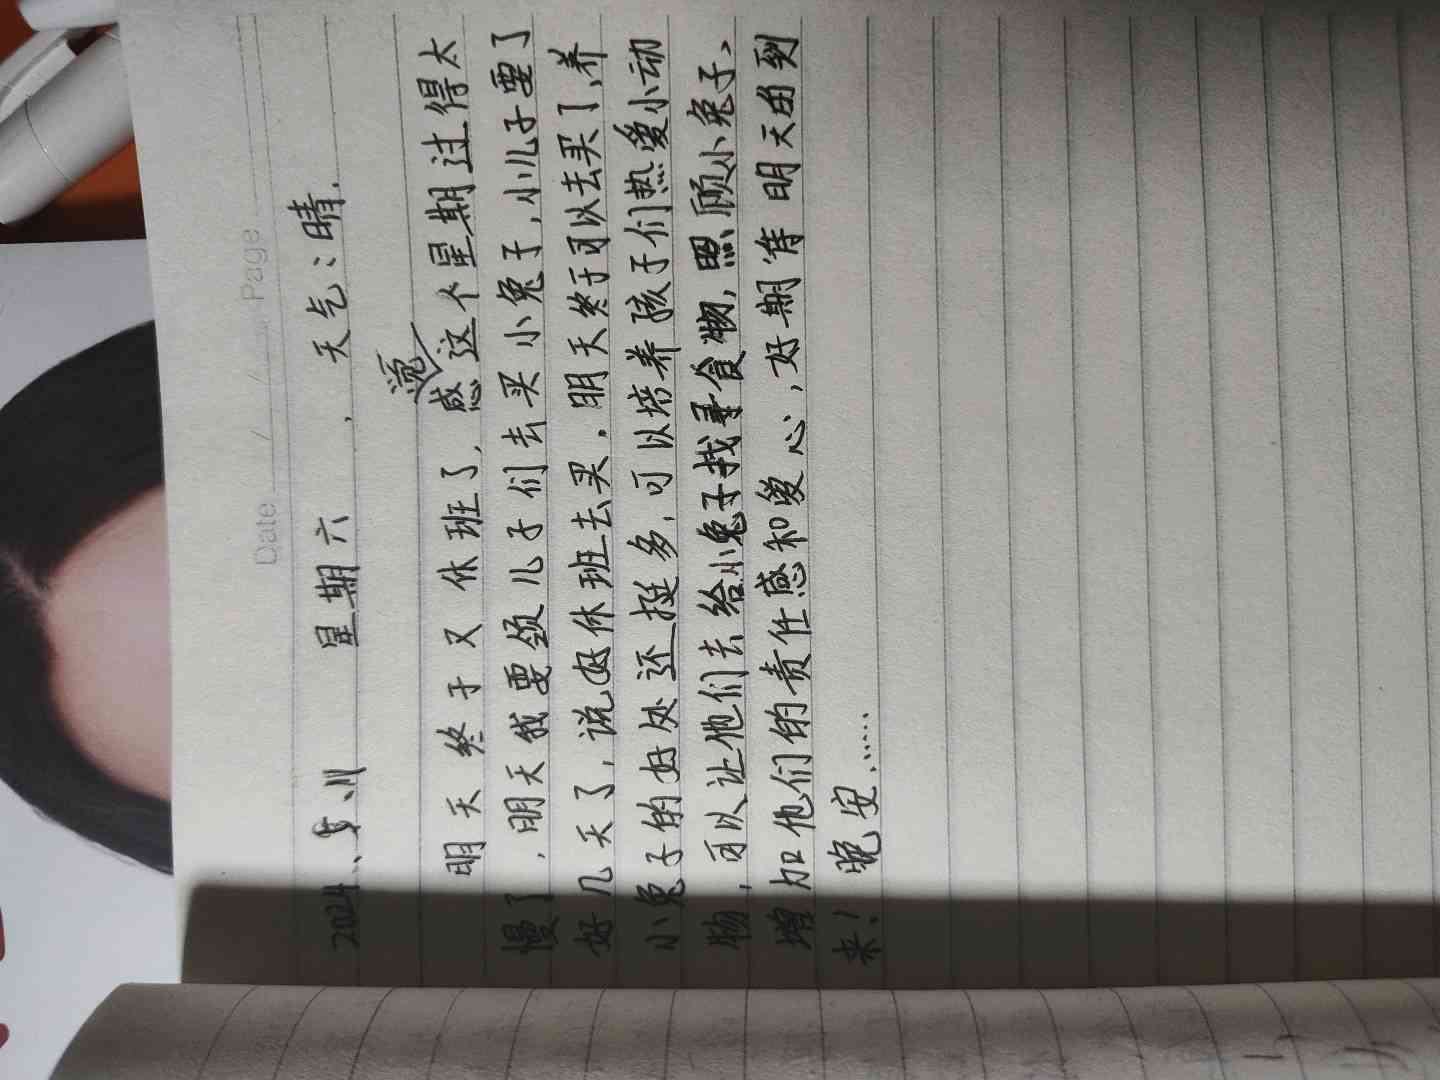 Date / / Page
2024. 星期六 . 天气:晴.
明天终于又休班了,感觉这个星期过得太
慢了,明天我要领儿子们去买小兔子,小儿子要了
好几天了,说好休班去买.明天终于可以去买了,养
小兔子的好处还挺多,可以培养孩子们热爱小动
物,可以让他们去给小兔子找寻食物,照顾小兔子、
增加他们的责任感和爱心,好期待明天的到
来! 晚安……